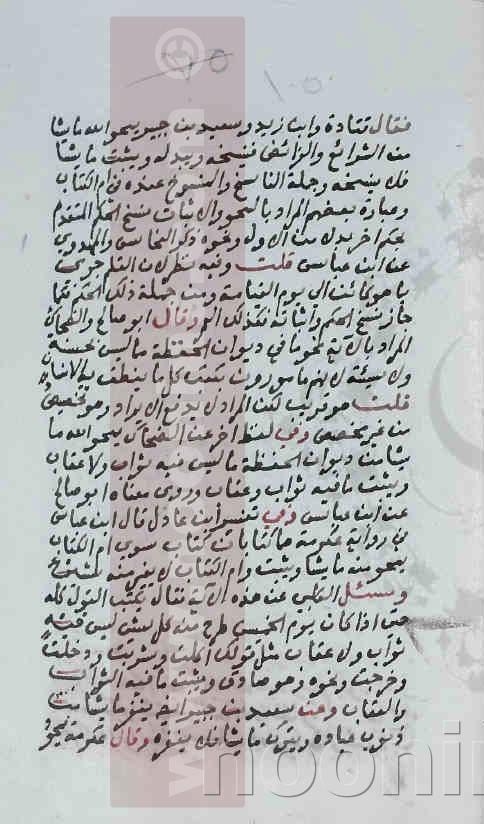 فقال قتادة وابن زيد وسعيد بن جبير يمحو الله ما يشا
من الشرائع والفرائض فينسخه ويبدله ويثبت ما يشا
فلا ينسخه وجملة الناسخ والمنسوخ عنده في ام الكتاب
وعبارة بعضهم المراد بالمحو والاثبات نسخ الحكم المتقدم
بحكم اخر بدلا من الاول ونحوه ذكر النحاس والمهدوي
عن ابن عباس قلت وفيه نظر لان القلم جرى
بما هو كائن الى يوم القيامة ومن جملة ذلك الحكم فكما
جاز نسخ الحكم واثباته فكذلك وقال ابو صالح والضحاك
المراد بالاية محو ما في ديوان الحفظة ما ليس بحسنة
ولا سيئة لانهم مامورون بكتب كل ما ينطق به الانسان
قلت هو قريب لكن المراد لا يدفع الايراد وهو تخصيص
من غير مخصص وفي لفظ اخر عن الضحاك يمحو الله ما
يشا من ديوان الحفظة ما ليس فيه ثواب ولا عقاب
ويثبت ما فيه ثواب وعقاب وروى معناه ابو صالح
عن ابن عباس وفي تفسير ابن عادل قال ابن عباس
في رواية عكرمة هما كتابان كتاب سوى ام الكتاب
يمحو منه ما يشا ويثبت وام الكتاب لا يغير منه شي
وسئل الكلبي عن هذه الاية فقال يكتب القول كله
حتى اذا كان يوم الخميس طرح منه كل شي ليس فيه
ثواب ولا عقاب مثل قولك اكلت وشربت ودخلت
وخرجت ونحوه وهو صادق ويثبت ما فيه الثواب
والعقاب وعن سعيد بن جبير ايضا يغفر ما يشا من
ذنوب عباده ويترك ما يشا فلا يغفره وقال عكرمة يمحو
noonin